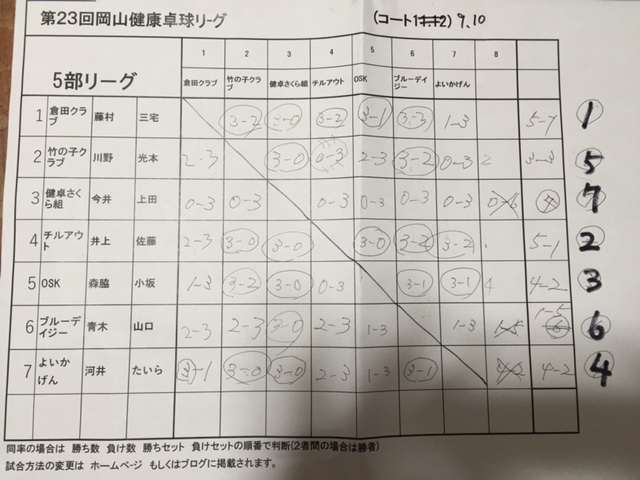 第23回岡山健康卓球リーグ (コート1 2) 9,10
1 2 3 4 5 6 7 8
5部リーグ 倉田クラブ 竹の子クラブ 健卓さくら組 チルアウト OSK ブルーデイジー よいかげん
1 倉田クラブ 藤村 三宅 3-2 3-2 3-1 1-3 1
2 竹の子クラブ 川野 光本 2-3 3-0 0-3 2-3 3-2 0-3 5
3 健卓さくら組 今井 上田 0-3 0-3 0-3 0-3 0-3 0-3 7
4 チルアウト 井上 佐藤 2-3 3-0 3-0 3-0 3-2 3-2 5-1 2
5 OSK 森脇 小坂 1-3 3-2 3-0 0-3 3-1 3-1 4-2 3
6 ブルーデイジー 青木 山口 2-3 2-3 3-0 2-3 1-3 1-3 1-5 6
7 よいかげん 河井 たいら 3-1 3-0 3-0 2-3 1-3 3-1 4-2 4-2 4
同率の場合は 勝ち数 負け数 勝ちセット 負けセットの順番で判断(2者間の場合は勝者)
試合方法の変更は ホームページ もしくはブログに掲載されます。